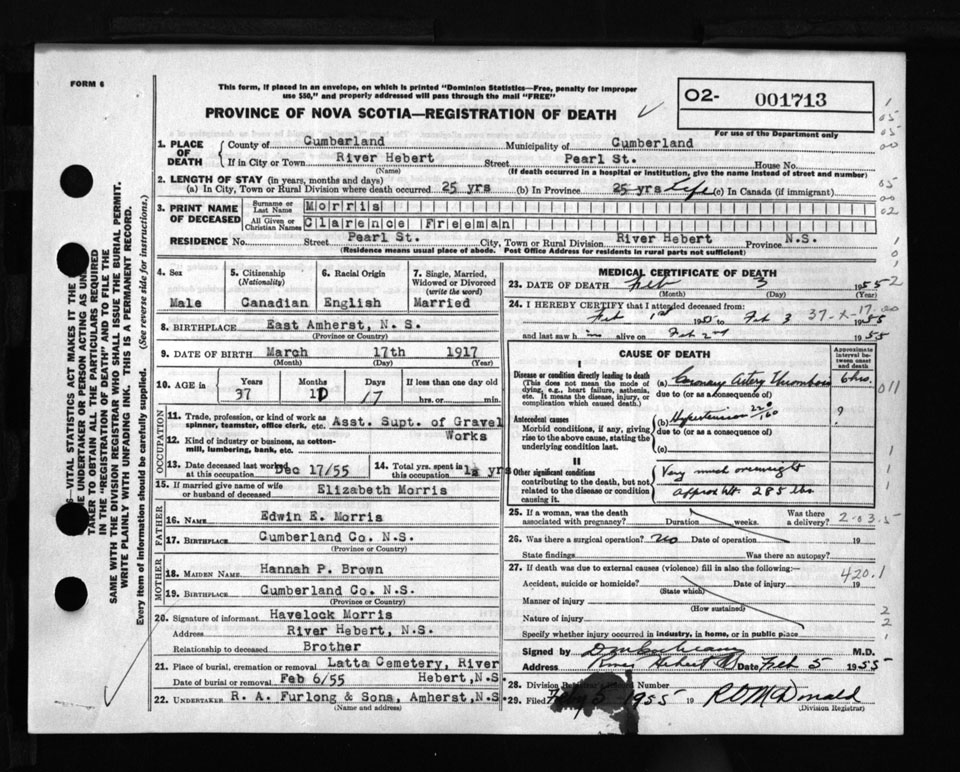 FORM 6
This form, if placed in an envelope, on which is printed "Dominion Statistics—Free, penalty for improper
use $50," and properly addressed will pass through the mail "FREE"
PROVINCE OF NOVA SCOTIA—REGISTRATION OF DEATH
O2- 001713
For use of the Department only
1. PLACE OF DEATH
County of Cumberland Municipality of Cumberland
If in City or Town River Hebert Street Pearl St. House No.
(Name) (If death occurred in a hospital or institution, give the name instead of street and number)
2. LENGTH OF STAY (in years, months and days)
(a) In City, Town or Rural Division where death occurred 25 yrs (b) In Province 25 yrs Life (c) In Canada (if immigrant)
3. PRINT NAME OF DECEASED
Surname or Last Name Morris
All Given or Christian Names Clarence Freeman
RESIDENCE No. Street Pearl St. City, Town or Rural Division River Hebert Province N.S.
(Residence means usual place of abode. Post Office Address for residents in rural parts not sufficient)
4. Sex Male
5. Citizenship (Nationality) Canadian
6. Racial Origin English
7. Single, Married, Widowed or Divorced (write the word) Married
8. BIRTHPLACE East Amherst, N. S.
(Province or Country)
9. DATE OF BIRTH March 17th 1917
(Month) (Day) (Year)
10. AGE in Years Months Days If less than one day old
37 17 hrs. or min.
OCCUPATION
11. Trade, profession, or kind of work as spinner, teamster, office clerk, etc. Asst. Supt. of Gravel
Works
12. Kind of industry or business, as cotton-mill, lumbering, bank, etc.
13. Date deceased last worked at this occupation Dec 17/55
14. Total yrs. spent in this occupation yrs
15. If married give name of wife or husband of deceased Elizabeth Morris
FATHER
16. NAME Edwin E. Morris
17. BIRTHPLACE Cumberland Co. N.S.
(Province or Country)
MOTHER
18. MAIDEN NAME Hannah P. Brown
19. BIRTHPLACE Cumberland Co. N.S.
(Province or Country)
20. Signature of informant Havelock Morris
Address River Hebert, N.S.
Relationship to deceased Brother
21. Place of burial, cremation or removal Latta Cemetery, River
Date of burial or removal Feb 6/55 Hebert, N.S.
22. UNDERTAKER R. A. Furlong & Sons, Amherst, N.S.
(Name and address)
MEDICAL CERTIFICATE OF DEATH
23. DATE OF DEATH Feb 3 1955
(Month) (Day) (Year)
24. I HEREBY CERTIFY that I attended deceased from:
Feb 1st to Feb 3 1955
37-X-17
and last saw h im alive on Feb 2nd 1955
CAUSE OF DEATH
Approximate interval between onset and death
I
Disease or condition directly leading to death
(This does not mean the mode of dying, e.g., heart failure, asthenia, etc. It means the disease, injury, or complication which caused death.)
(a) Coronary Artery Thrombosis 6 hrs.
due to (or as a consequence of)
Antecedent causes
Morbid conditions, if any, giving rise to the above cause, stating the underlying condition last.
(b) Hypertension 220/160 ?
due to (or as a consequence of)
(c)
II
Other significant conditions
contributing to the death, but not related to the disease or condition causing it.
Very much overweight
approx wt. 285 lbs
25. If a woman, was the death associated with pregnancy? Duration weeks. Was there a delivery?
2-03.5
26. Was there a surgical operation? no Date of operation 19
State findings Was there an autopsy?
27. If death was due to external causes (violence) fill in also the following:
420.1
Accident, suicide or homicide? Date of injury 19
(State which)
Manner of injury
(How sustained)
Nature of injury
Specify whether injury occurred in industry, in home, or in public place
Signed by M.D.
Address River Hebert Date Feb 5 1955
28. Division Registrar's Record Number
29. Filed 5 1955 19 McDonald
(Division Registrar)
VITAL STATISTICS ACT MAKES IT THE
UNDERTAKER OR PERSON ACTING AS
TAKER TO OBTAIN ALL THE PARTICULARS REQUIRED
IN THE "REGISTRATION OF DEATH" AND TO FILE THE
SAME WITH THE DIVISION REGISTRAR WHO SHALL ISSUE THE BURIAL PERMIT.
WRITE PLAINLY WITH UNFADING INK. THIS IS A PERMANENT RECORD.
Every item of information should be carefully supplied. (See reverse side for instructions.)